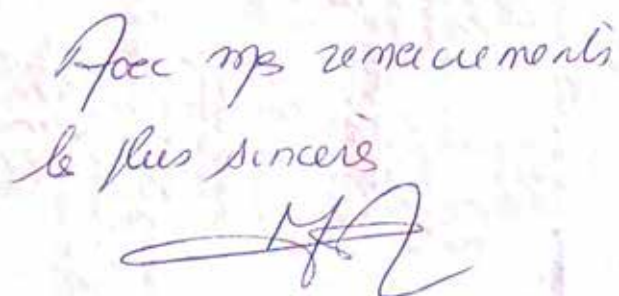 Avec mes remerciements
les plus sincères